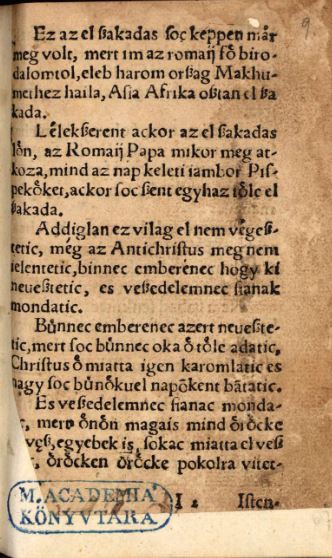 9
Ez az el ßakadas soc keppen mår
meg volt, mert im az romaij fö̋ biro-
dalomtol, eleb harom orßag Makhu-
methez haila, Asia Afrika oßtan el ßa
kada.
Lelekßerent ackor az el ßakadas
lőn, az Romaij Papa mikor meg at-
koza, mind az nap keleti iambor Pis-
pekőket, ackor soc ßent egyhaz tőle el
ßakada.
Addiglan ez vilag el nem vegeß-
tetic, még az Antichristus meg nem
ielentetic, binnec emberenec hogy ki
neueßtetic, es veßedelemnec fianak
mondatic.
Bűnnec emberenec azert neueßte-
tic, mert soc bűnnec oka ő tőle adatic,
Christus ő miatta igen karomlatic es
nagy soc bűnőkuel napőkent bātatic.
Es veßedelemnec fianac monda-
mert őnőn magais mind őrőcke
veß, egyebek is, sokac miatta el veß
őrőcken őrőcke pokolra vitet-
I 2 Isten-
M. ACADEMIA
KÖNYVTARA